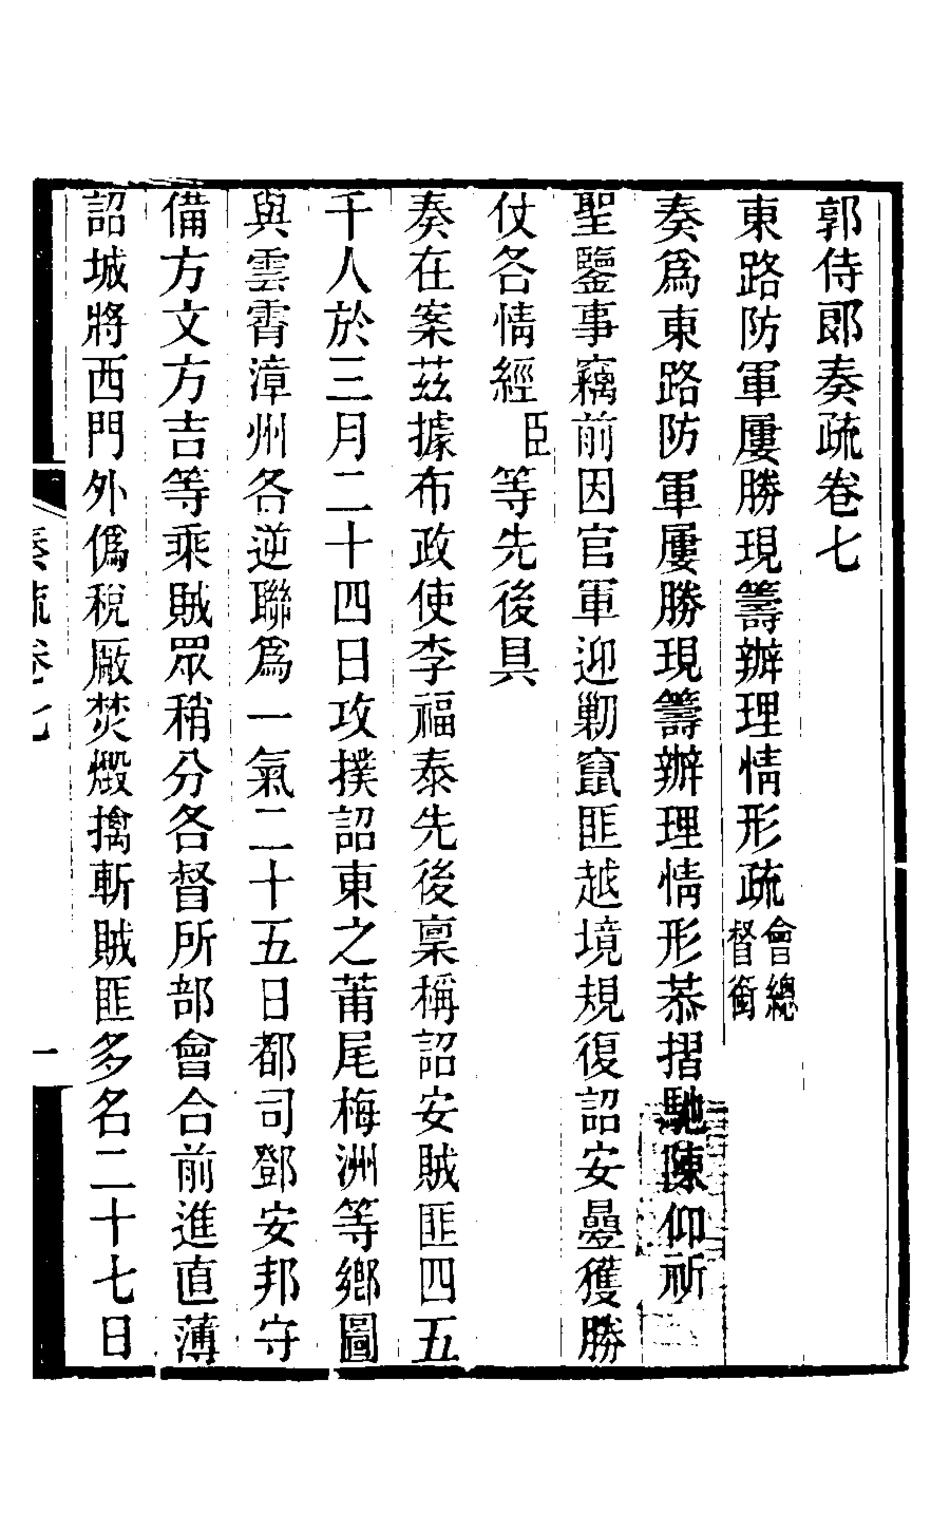 郭侍郎奏疏卷七
東路防軍屢勝現籌辦理情形疏會總督銜
奏爲東路防軍屢勝現籌辦理情形恭摺馳陳仰祈
聖鑒事竊前因官軍迎勦竄匪越境規復詔安曡獲勝
仗各情經臣等先後具
奏在案茲據布政使李福泰先後稟稱詔安賊匪四五
千人於三月二十四日攻撲詔東之莆尾梅洲等鄉圖
與雲霄漳州各逆聯爲一氣二十五日都司鄧安邦守
備方文方吉等乘賊眾稍分各督所部會合前進直薄
詔城將西門外僞稅厰焚燬擒斬賊匪多名二十七日
奏疏卷七
一